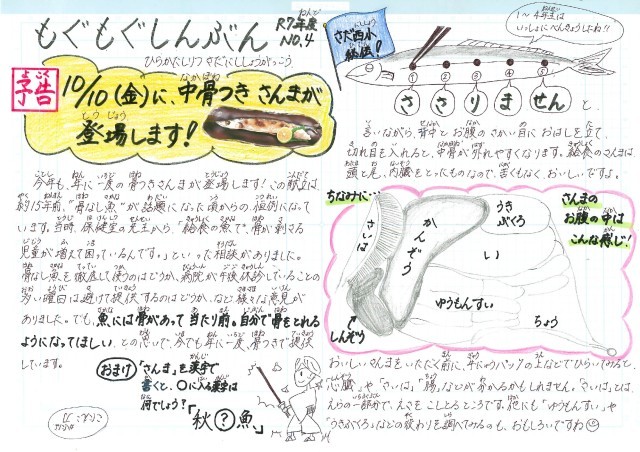 もぐもぐしんぶん
R7年度
NO.4
ひらかたしりつ さだにししょうがっこう
予告
10/10(金)に、中骨つき さんまが
登場します!
今年も、年に一度の骨つきさんまが登場します!この献立は、
約15年前、"骨なし魚"が話題になった頃からの、恒例になって
います。当時、保健室の先生から、「給食の魚で、骨が刺さる
児童が増えて困っているんです。」といった相談がありました。
骨なし魚を徹底して使うのはどうか、病院が午後休診していることの
多い曜日は避けて提供するのはどうか、など、様々な意見が
ありました。でも、魚には骨があって当たり前。自分で骨をとれる
ようになってほしい、との思いで、今でも年に一度、骨つきで提供
しています。
おまけ
「さんま」を漢字で
書くと、○に入る漢字は
何でしょう?
「秋?魚」
さだ西小
秘伝!
1~4年生は
いっしょにべんきょうしたね!!
① ② ③ ④ ⑤
さ さ り ま せん と、
言いながら、背中とお腹のさかい目におはしを立て、
切れ目を入れると、中骨が外れやすくなります。給食のさんまは、
頭と尾、内臓をとったものなので、苦くもなく、おいしいですよ。
ちなみに…
さんまの
お腹の中は
こんな感じ!
さいは
かんぞう
うき
ぶくろ
い
ゆうもんすい
ちょう
しんぞう
おいしいさんまをいただく前に、牛にゅうパックの上などでひらいてみると、
「心臓」や「さいは」、「腸」などがわかるかもしれません。「さいは」とは、
えらの一部分で、えさをこしとるところです。他にも「ゆうもんすい」や
「うきぶくろ」などの役わりを調べてみるのも、おもしろいですね